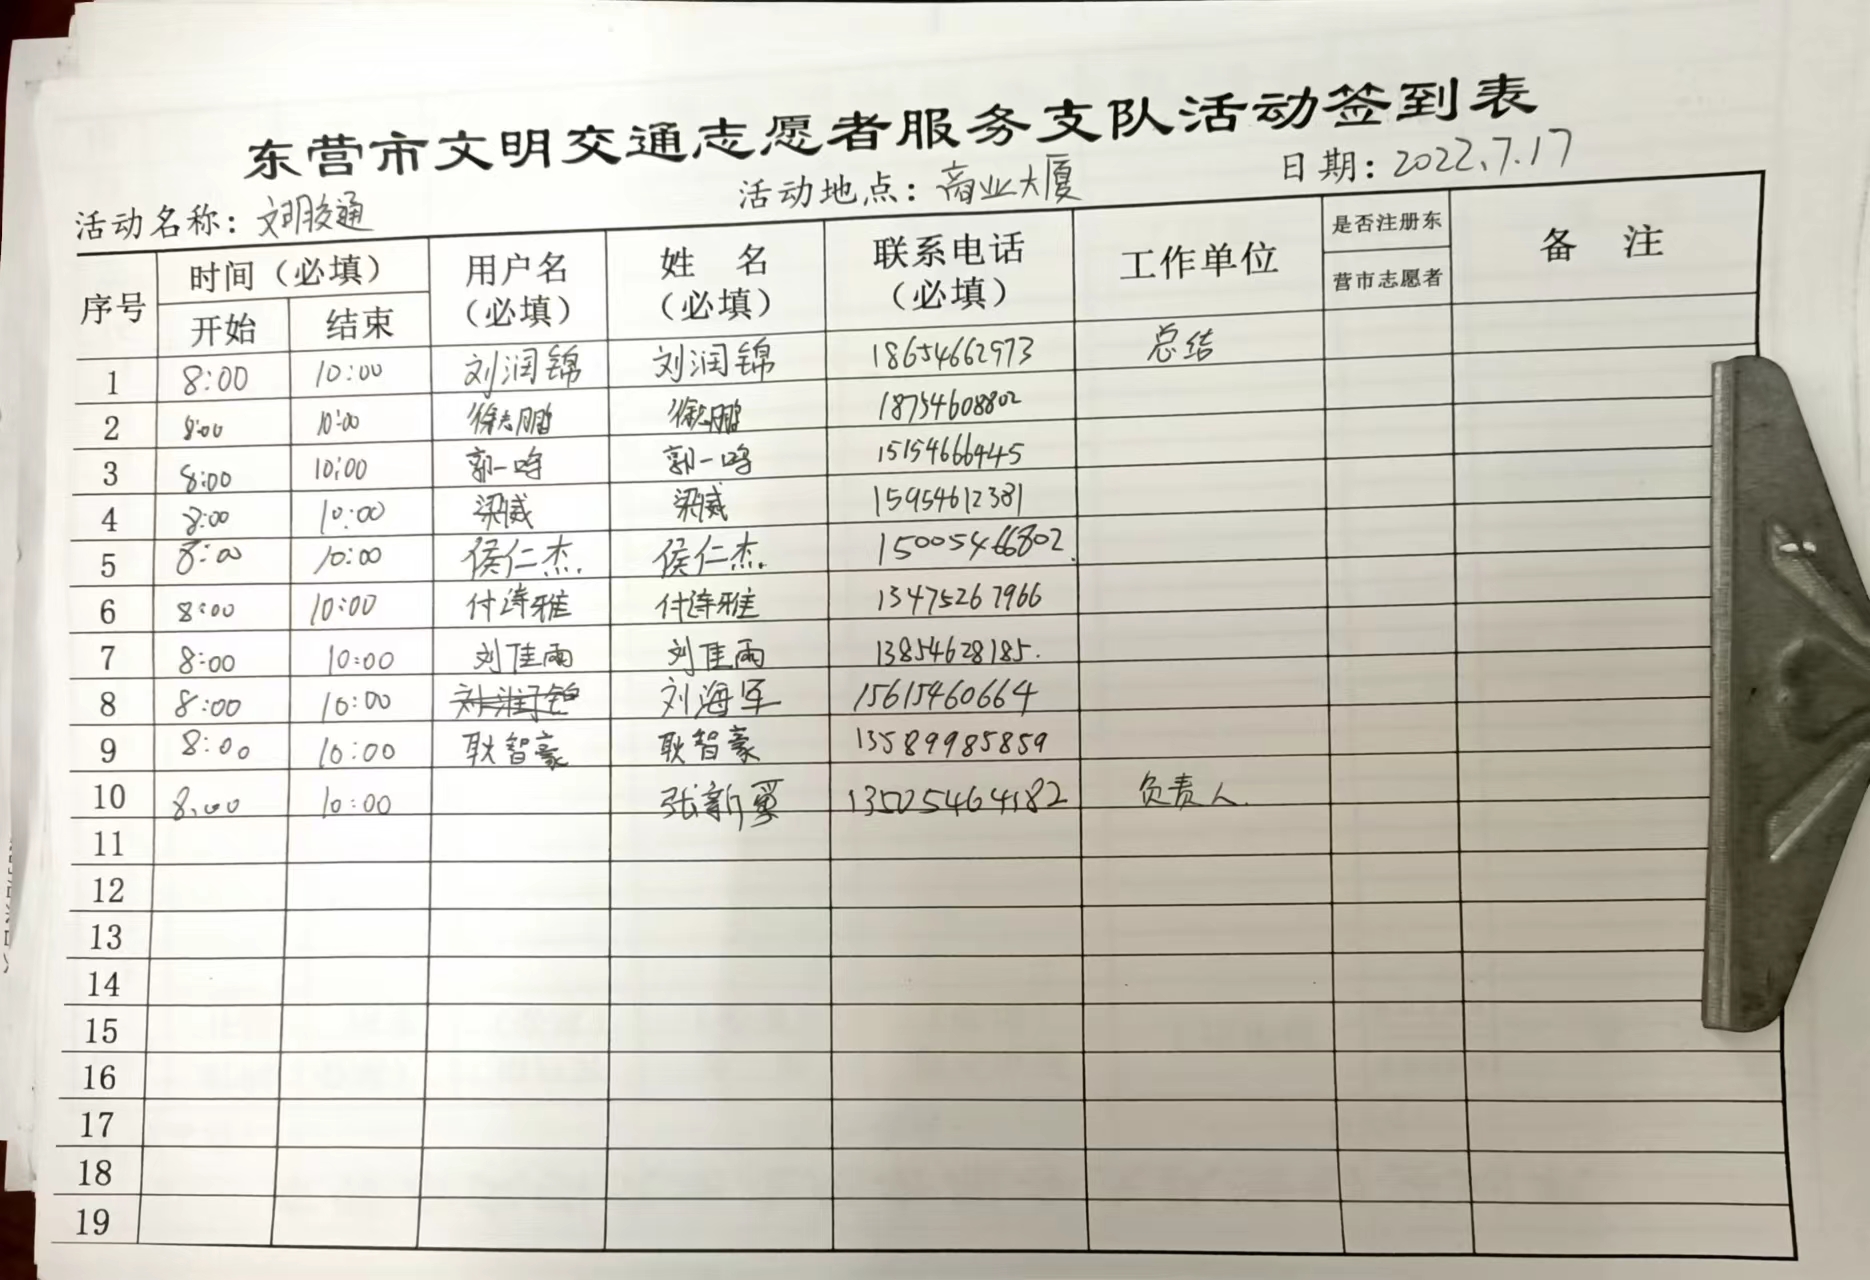 东营市文明交通志愿者服务支队活动签到表
活动名称：文明交通 活动地点：商业大厦 日期：2022.7.17
序号 时间（必填） 用户名（必填） 姓 名（必填） 联系电话（必填） 工作单位 是否注册东营市志愿者 备 注
开始 结束
1 8:00 10:00 刘润锦 刘润锦 18654662973 总结
2 8:00 10:00 徐志鹏 徐志鹏 18754608802
3 8:00 10:00 郭一鸣 郭一鸣 15154666445
4 8:00 10:00 梁威 梁威 15954612381
5 8:00 10:00 侯仁杰. 侯仁杰. 15005466802.
6 8:00 10:00 付诗雅 付诗雅 13475267966
7 8:00 10:00 刘佳雨 刘佳雨 13854628185.
8 8:00 10:00 刘海军 15615460664
9 8:00 10:00 耿智豪 耿智豪 13589985859
10 8:00 10:00 张新 13505464182 负责人.
11
12
13
14
15
16
17
18
19